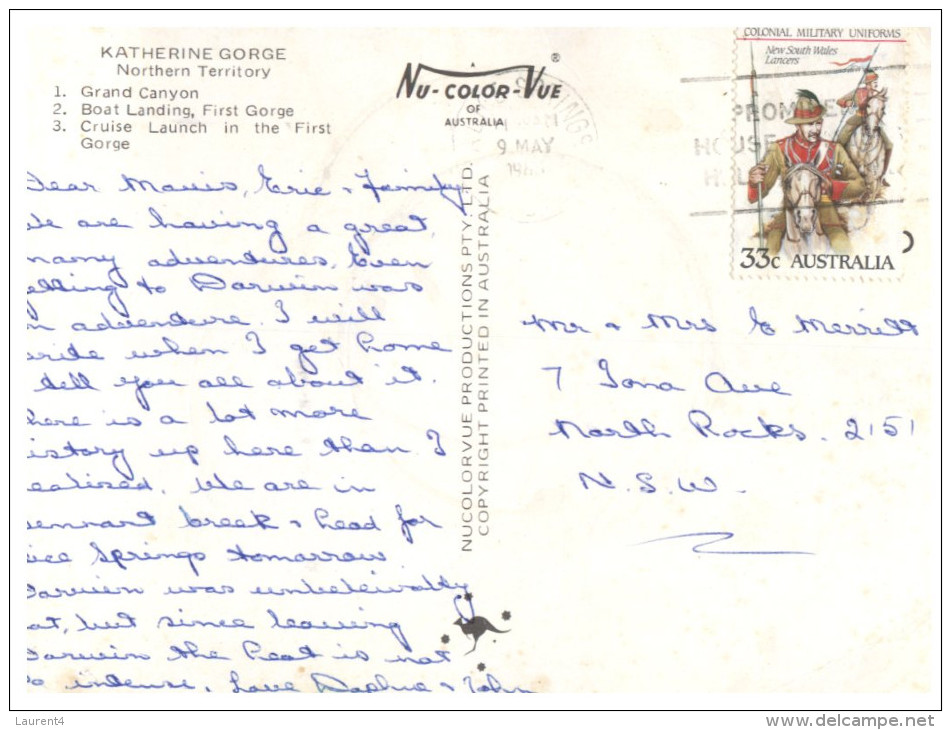 KATHERINE GORGE
Northern Territory
1. Grand Canyon
2. Boat Landing, First Gorge
3. Cruise Launch in the First
Gorge
A
NU-COLOR-VUE
®
OF
AUSTRALIA
9 MAY
COLONIAL MILITARY UNIFORMS
New South Wales
Lancers
33c AUSTRALIA
Dear Mavis, Eric & family
We are having a great,
many adventures. Even
getting to Darwin was
an adventure. I will
write when I get home
& tell you all about it.
There is a lot more
history up here than I
realised. We are in
Tennant break & head for
Alice Springs tomorrow
Darwin was unbelievably
hot, but since leaving
Darwin the heat is not
so intense. Love Daphne & John
NUCOLORVUE PRODUCTIONS PTY. LTD.
COPYRIGHT PRINTED IN AUSTRALIA
Mr & Mrs E Merritt
7 Iona Ave
North Rocks. 2151
N.S.W.
Laurent4
www.delcampe.net